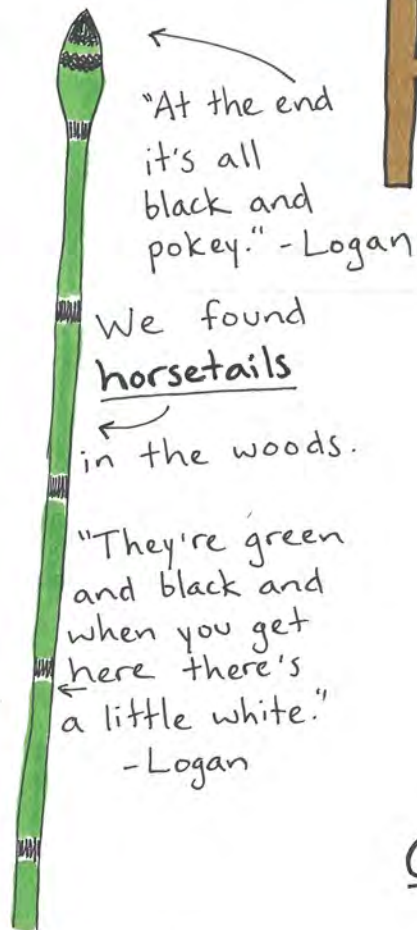 "At the end
it's all
black and
pokey." - Logan
We found
horsetails
in the woods.
"They're green
and black and
when you get
here there's
a little white."
- Logan